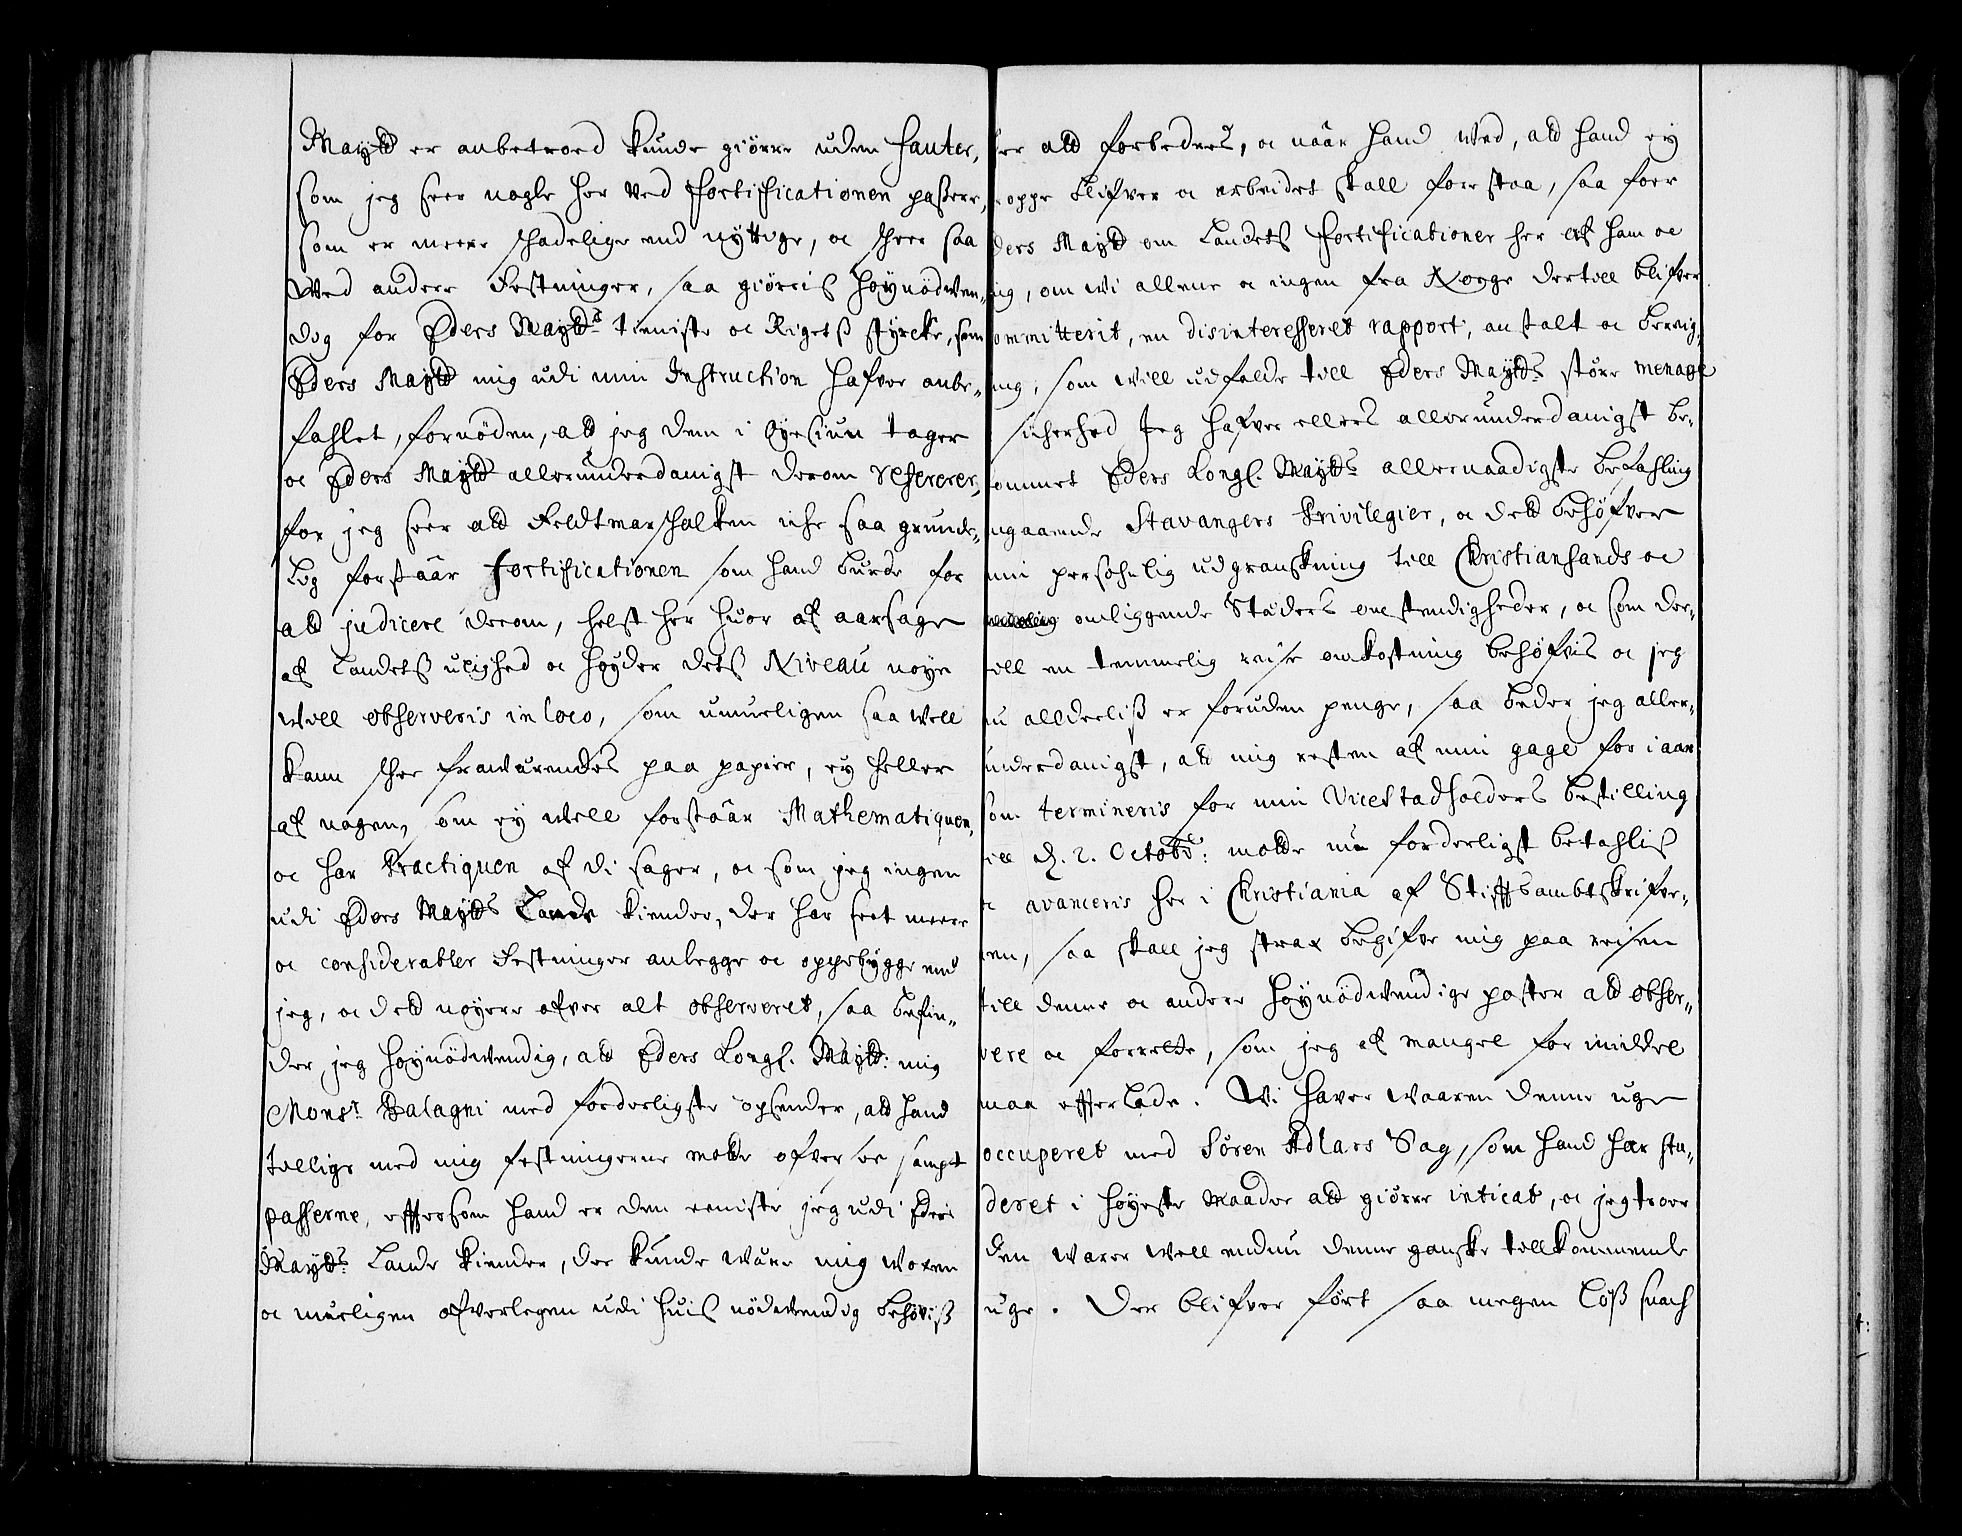 Mayttt er anbetroed kunde giörre uden fauter,
som jeg seer nogle her ved Fortifficationen passere,
som er meere schadelige end nyttige, oc scheer saa
Wed andere Festninger, saa giöris höynödwen-
dig for Eders Maytts tieniste oc Rigetß styrcke, som
Eders Maytt mig udi min Instruction hafver anbe-
fahlet, fornöden, att jeg dem i Öyesiun tager
oc Eders Maytt allerunderdanigst derom refererer,
for jeg seer att Feldtmarschalken iche saa grunde-
lig forstaar fortificationen som hand burde for
att judicere derom, helst her huor af aarsage
af Landetß ulighed oc höyder detß Niveau nöye
will observeris in loco, som umueligen saa well
kann schee frawärendes paa papier, ey heller
af nogen, som ey well forstaar Mathematiquen,
oc har Practiquen af di sager, oc som jeg ingen
udi Eders Maytts Lande kiender, der har seet meere
oc considerabler Festninger anlegge oc oppebygge end
jeg, oc dett nöyere ofver alt observeret, saa befin-
der jeg höynödwendig, att Eders Kongl. Maytt: mig
Monsr Balagni med forderligste opsender, att hand
tillige med mig festningerne motte ofver see sampt
passerne, effterson hand er den eeniste jeg udi Eders
Maytts Lande kiender, der kunde wäre mig woxen
oc mueligen ofverlegen udi huis nödwendig behöviß
her att forbedres, oc naar hand Wed, att hand ey
oppe blifver oc arbeidet skall forestaa, saa foer
Eders Maytt om Landetß Fortificationer her af ham oc
mig, om wi allene oc ingen fra Norge dertill blifver
committerit, en disinteresseret rapport, anstalt oc bereig-
ning, som will udfalde till Eders Maytts störe menage
sicherhed Jeg hafver ellers allerunderdanigst be-
kommet Eders Kongl. Maytts allernaadigste befahling
angaaende Stavangers Privilegier, oc dett behöfver
min persohnlig udgranskning till Christiansands oc
omliggende Städers omstendigheder, oc som der-
till en temmelig reise omkostning behöfvis oc jeg
nu alldeeliß er foruden penge, saa beder jeg aller-
underdanigst, att mig resten af min gage for i aar
som termineris for min Vicestadholders bestilling
till d. 2. Octobr: motte nu forderligst betahliß
oc avanceris her i Christiania af Stifftsambtskrifve-
ren, saa skall jeg strax begifve mig paa reisen
till denne oc andere höynödwendige poster att obser-
vere oc forrette, som jeg af mangel for middel
maa effterlade. Wi haver waaren denne uge
occuperet med Sören Adlars Sag, som hand har stu-
deret i höyeste maader att giörre inticat, oc jeg troer
den warer well endnu denne ganske tillkommende
uge. Der blifver fört saa megen löß snach